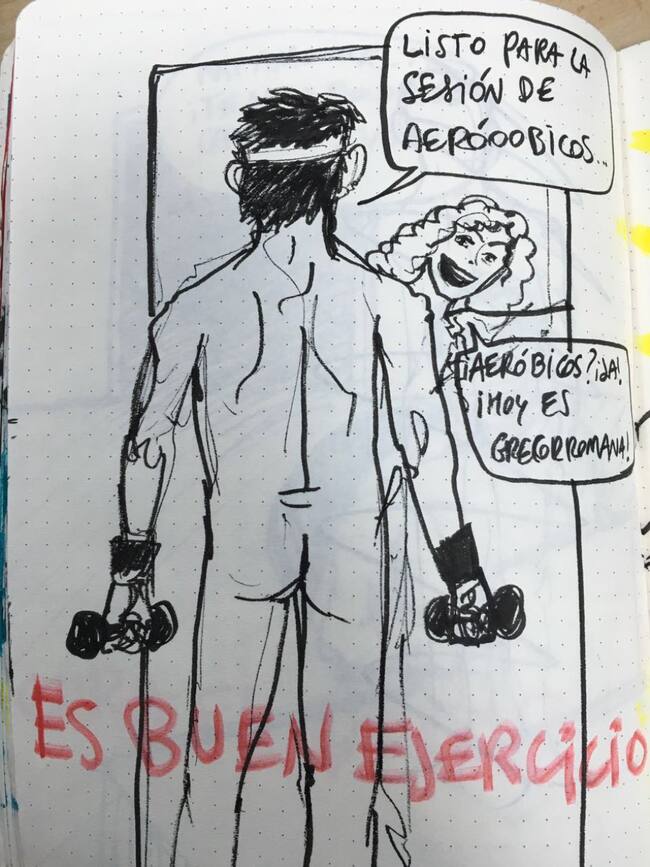 LISTO PARA LA
SESIÓN DE
AERÓOOBICOS...
¿AERÓBICOS? ¡JA!
¡HOY ES
GRECORROMANA!
ES BUEN EJERCICIO